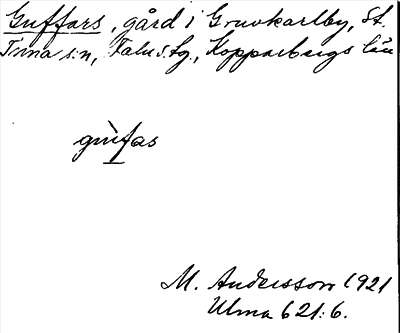 Guffars, gård i Gruvkarlby, St.
Tuna s:n, Falu s. lg., Kopparbergs län
gùfas
M. Andersson 1921
Ulma 621:6.